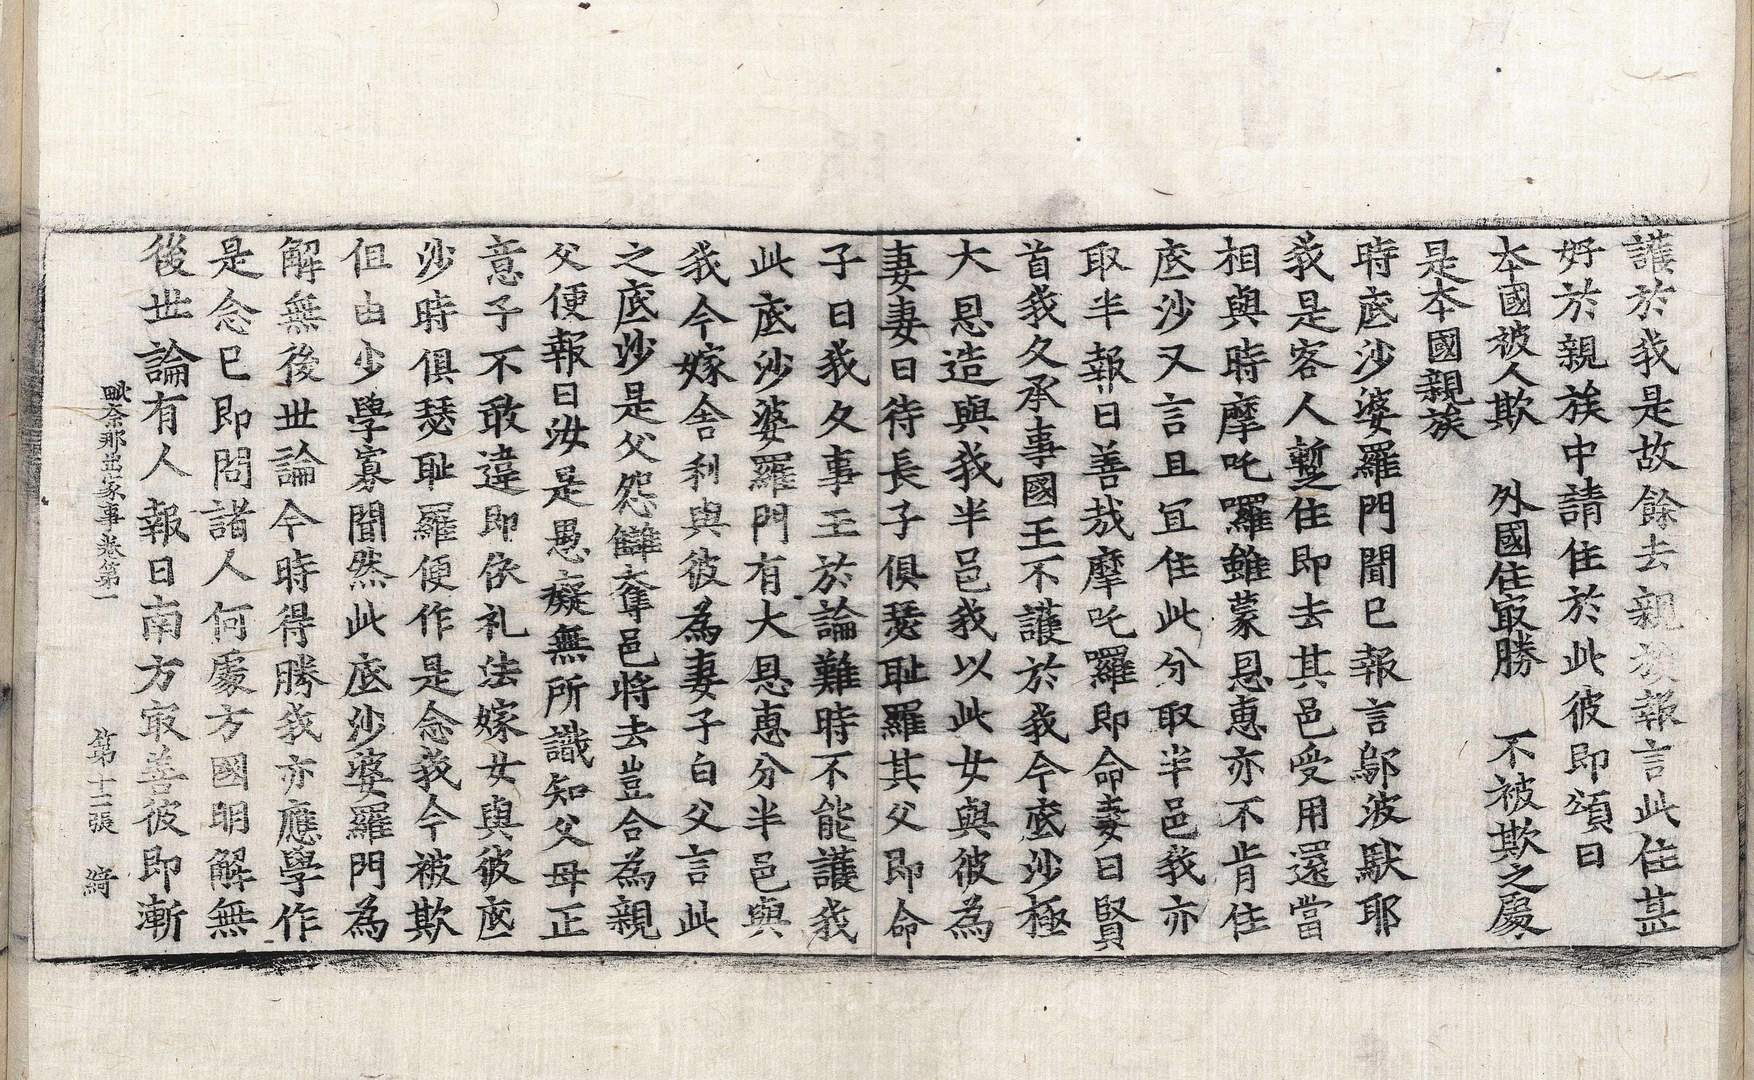 護於我是故餘去親族報言此住甚
好於親族中請住於此彼即頌曰
本國被人欺　外國住冣勝　不被欺之處
是本國親族
時底沙婆羅門聞已報言鄔波馱耶
我是客人蹔住即去其邑受用還當
相與時摩吒囉雖蒙恩惠亦不肯住
底沙又言且冝住此分取半邑我亦
取半報曰善哉摩吒囉即命妻曰賢
首我久承事國王不護於我今底沙極
大恩造與我半邑我以此女與彼為
妻妻曰待長子俱瑟耻羅其父即命
子曰我久事王於論難時不能護我
此底沙婆羅門有大恩惠分半邑與
我今嫁舍利與彼為妻子白父言此
之底沙是父怨讎奪邑將去豈合為親
父便報曰汝是愚癡無所識知父母正
意子不敢違即依礼法嫁女與彼底
沙時俱瑟耻羅便作是念我今被欺
但由少學寡聞然此底沙婆羅門為
解無後世論今時得勝我亦應學作
是念已即問諸人何處方國明解無
後世論有人報曰南方冣善彼即漸
毗奈耶出家事卷第一　第十二張　綺